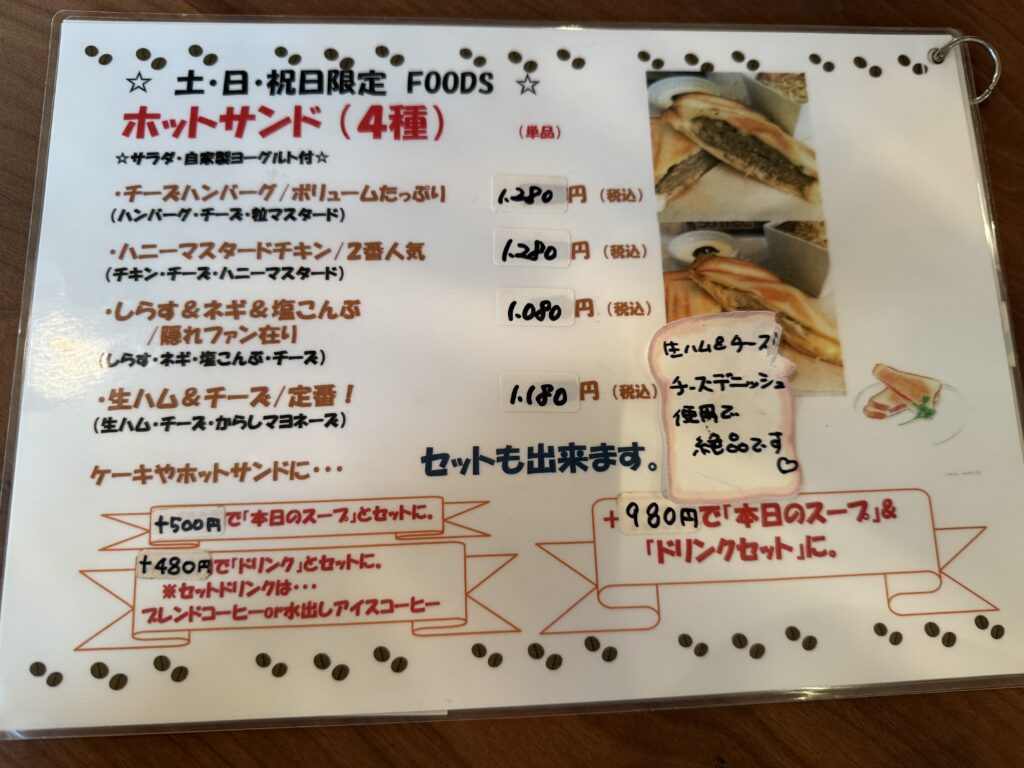 ☆ 土・日・祝日限定 FOODS ☆
ホットサンド(4種) (単品)
☆サラダ・自家製ヨーグルト付☆
・チーズハンバーグ/ボリュームたっぷり 1.280円(税込)
(ハンバーグ・チーズ・粒マスタード)
・ハニーマスタードチキン/2番人気 1.280円(税込)
(チキン・チーズ・ハニーマスタード)
・しらす&ネギ&塩こんぶ 1.080円(税込)
/隠れファン在り
(しらす・ネギ・塩こんぶ・チーズ)
・生ハム&チーズ/定番! 1.180円(税込)
(生ハム・チーズ・からしマヨネーズ)
生ハム&チーズは
チーズデニッシュ
使用で
絶品です♡
ケーキやホットサンドに・・・ セットも出来ます。
+500円で「本日のスープ」とセットに。
+480円で「ドリンク」とセットに。
※セットドリンクは・・・
ブレンドコーヒーor水出しアイスコーヒー
+980円で「本日のスープ」&
「ドリンクセット」に。